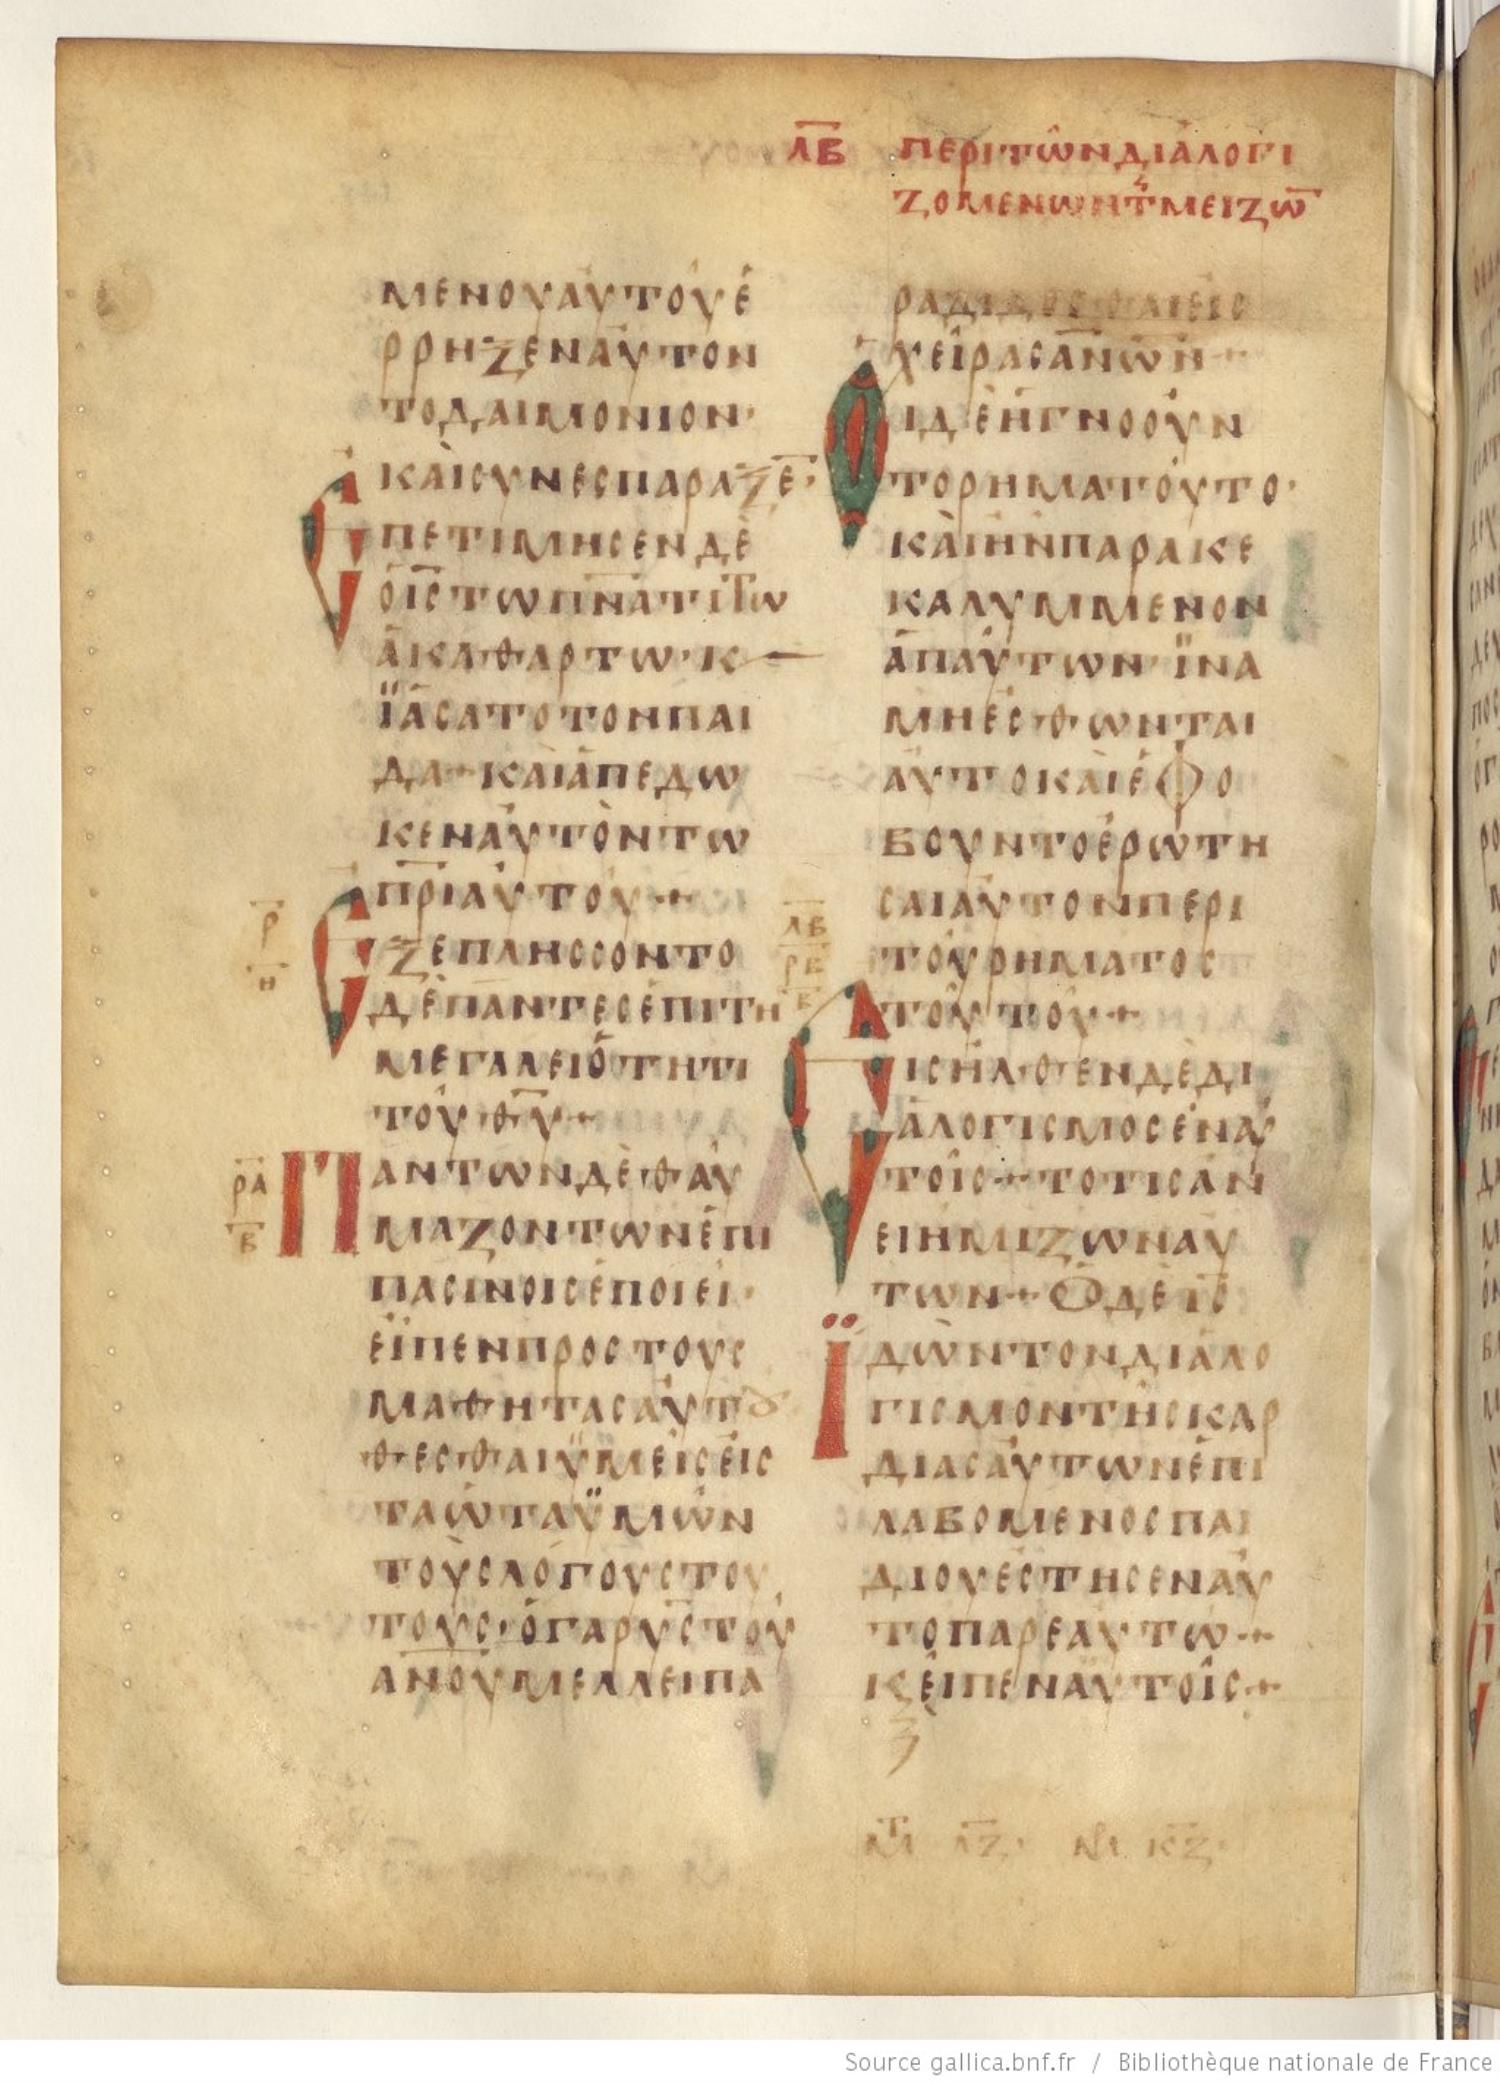 ΛΒ ΠΕΡΙΤΩΝΔΙΑΛΟΓΙ
ΖΟΜΕΝΩΝΤΜΕΙΖΩ
ΜΕΝΟΥΑΥΤΟΥΕ
ΡΡΗΞΕΝΑΥΤΟΝ
ΤΟΔΑΙΜΟΝΙΟΝ·
ΚΑΙϹΥΝΕϹΠΑΡΑΞΕ·
ΕΠΕΤΙΜΗϹΕΝΔΕ
ΟΙϹΤΩΠΝΑΤΙΤΩ
ΑΚΑΘΑΡΤΩ·Κ
ΪΑϹΑΤΟΤΟΝΠΑΙ
ΔΑ+ΚΑΙΑΠΕΔΩ
ΚΕΝΑΥΤΟΝΤΩ
ΠΡΙΑΥΤΟΥ+
Ρ
Η
ΕΞΕΠΛΗϹϹΟΝΤΟ
ΔΕΠΑΝΤΕϹΕΠΙΤΗ
ΜΕΓΑΛΕΙΟΤΗΤΙ
ΤΟΥΘΥ+
ΡΑ
Β
ΠΑΝΤΩΝΔΕΘΑΥ
ΜΑΖΟΝΤΩΝΕΠΙ
ΠΑϹΙΝΟΙϹΕΠΟΙΕΙ·
ΕΙΠΕΝΠΡΟϹΤΟΥϹ
ΜΑΘΗΤΑϹΑΥΤȢ
ΘΕϹΘΑΙΫΜΕΙϹΕΙϹ
ΤΑΩΤΑΫΜΩΝ
ΤΟΥϹΛΟΓΟΥϹΤΟΥ
ΤΟΥϹ·ΟΓΑΡΥϹΤΟΥ
ΑΝΟΥΜΕΛΛΕΙΠΑ
ΡΑΔΙΔΟϹΘΑΙΕΙϹ
ΧΕΙΡΑϹΑΝΩΝ+
ΟΙΔΕΗΓΝΟΟΥΝ
ΤΟΡΗΜΑΤΟΥΤΟ·
ΚΑΙΗΝΠΑΡΑΚΕ
ΚΑΛΥΜΜΕΝΟΝ
ΑΠΑΥΤΩΝ·ΪΝΑ
ΜΗΕϹΘΩΝΤΑΙ
ΑΥΤΟΚΑΙΕΦΟ
ΒΟΥΝΤΟΕΡΩΤΗ
ϹΑΙΑΥΤΟΝΠΕΡΙ
ΤΟΥΡΗΜΑΤΟϹ
ΤΟΥΤΟΥ+
ΛΒ
ΡΒ
Β
ΕΙϹΗΛΘΕΝΔΕΔΙ
ΑΛΟΓΙϹΜΟϹΕΝΑΥ
ΤΟΙϹ+ΤΟΤΙϹΑΝ
ΕΙΗΜΙΖΩΝΑΥ
ΤΩΝ+ΟΔΕΙϹ
ΪΔΩΝΤΟΝΔΙΑΛΟ
ΓΙϹΜΟΝΤΗϹΚΑΡ
ΔΙΑϹΑΥΤΩΝΕΠΙ
ΛΑΒΟΜΕΝΟϹΠΑΙ
ΔΙΟΥΕϹΤΗϹΕΝΑΥ
ΤΟΠΑΡΕΑΥΤΩ+
ΚϚΕΙΠΕΝΑΥΤΟΙϹ+
ΛΖ· ΚΖ·
Source gallica.bnf.fr / Bibliothèque nationale de France